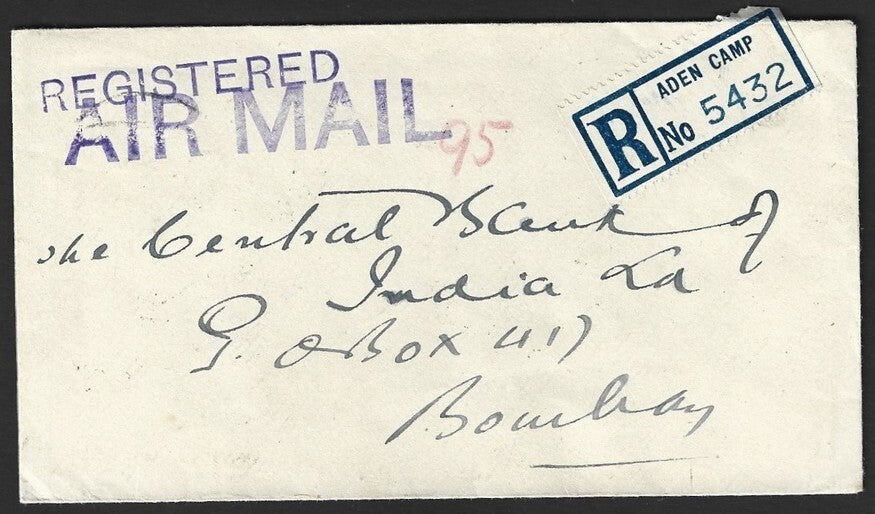 REGISTERED
AIR MAIL
95
R
ADEN CAMP
No 5432
The Central Bank of
India Ld
P. O Box 417
Bombay